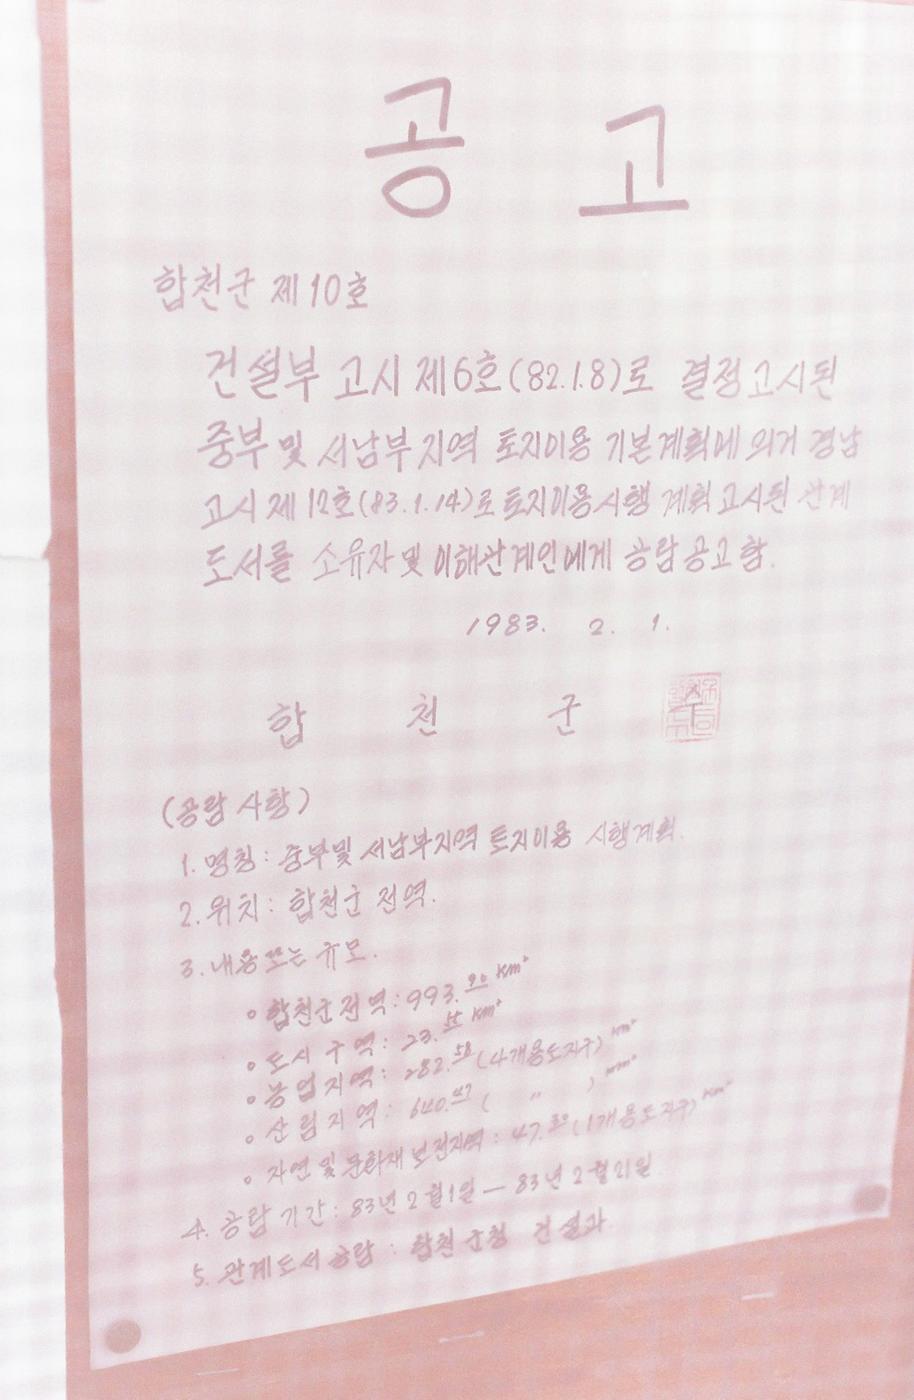 공 고
합천군 제10호
건설부 고시 제6호(82.1.8)로 결정고시된
중부 및 서남부지역 토지이용 기본계획에 의거 경남
고시 제12호(83.1.14)로 토지이용시행 계획 고시된 관계
도서를 소유자 및 이해관계인에게 공람 공고함.
1983. 2. 1.
합 천 군
(공람 사항)
1. 명칭: 중부및 서남부지역 토지이용 시행계획.
2. 위치: 합천군 전역.
3. 내용또는 규모.
○ 합천군전역: 993. km²
○ 도시 구역: 23. km²
○ 농업지역: 282.58 (4개용도지구) km²
○ 산림지역: 640.47 ( 〃 )
○ 자연 및 문화재 보전지역: 47. (1개용도지구) km²
4. 공람 기간: 83년 2월1일 — 83년 2월21일
5. 관계도서 공람: 합천 군청 건설과